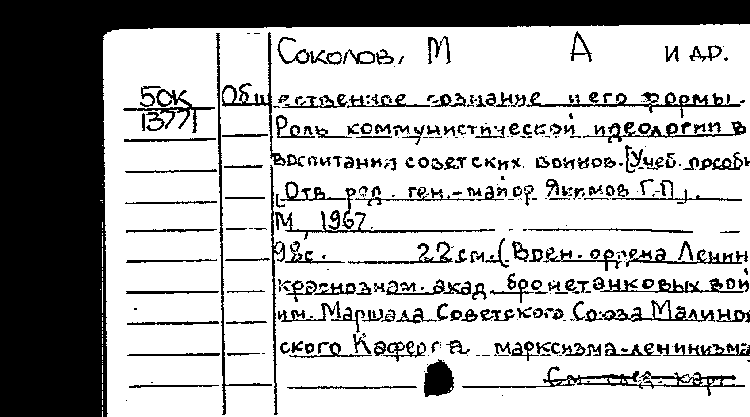 Соколов, М А и др.
50К Общественное сознание и его формы.
13771 Роль коммунистической идеологии в
воспитании советских воинов. [Учеб. пособи
[Отв. ред. ген.-майор Якимов Г.П].
М, 1967
98с. 22 см. (Воен. ордена Ленин
краснознам. акад. бронетанковых вой
им. Маршала Советского Союза Малинов
ского Кафедра марксизма-ленинизма
См. след. карт.